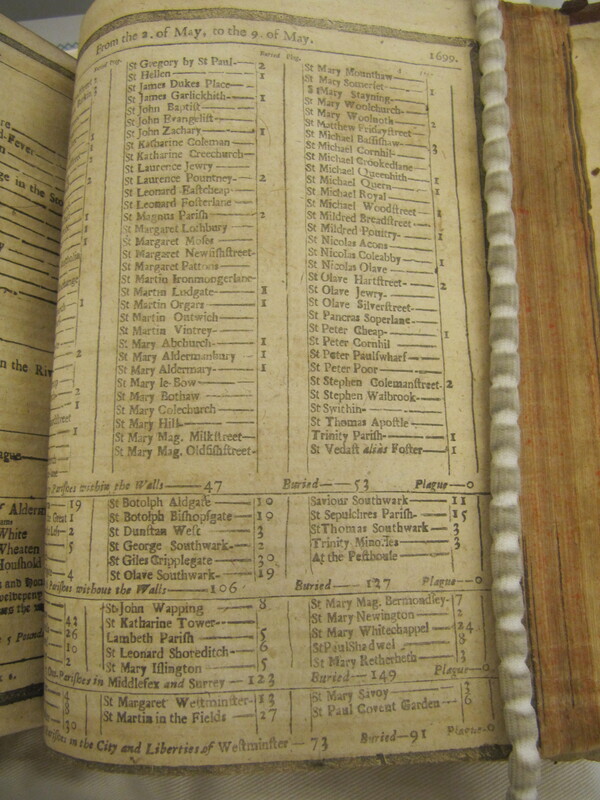 From the 2. of May, to the 9. of May. 1699.
Buried Plag.
St Gregory by St Paul— 2
St Hellen— 1
St James Dukes Place—
St James Garlickhith— 1
St John Baptist
St John Evangelist—
St John Zachary— 1
St Katharine Coleman
St Katharine Creechurch—
St Laurence Jewry—
St Laurence Pountney— 2
St Leonard Eastcheap
St Leonard Fosterlane
St Magnus Parish— 2
St Margaret Lothbury
St Margaret Moses
St Margaret Newfishstreet-
St Margaret Pattons
St Martin Ironmongerlane-
St Martin Ludgate— 1
St Martin Orgars— 1
St Martin Outwich
St Martin Vintrey-
St Mary Abchurch— 1
St Mary Aldermanbury 1
St Mary Aldermary— 1
St Mary le-Bow
St Mary Bothaw
St Mary Colechurch
St Mary Hill—
St Mary Mag. Milkstreet—
St Mary Mag. Oldfishstreet-
St Mary Mounthaw
St Mary Somerset— 1
St Mary Stayning—
St Mary Woolchurch—
St Mary Woolnoth
St Matthew Fridaystreet
St Michael Bassishaw— 3
St Michael Cornhil
St Michael Crookedlane
St Michael Queenhith
St Michael Quern
St Michael Royal
St Michael Woodstreet
St Mildred Breadstreet—
St Mildred Poultry—
St Nicolas Acons
St Nicolas Coleabby
St Nicolas Olave
St Olave Hartstreet— 2
St Olave Jewry—
St Olave Silverstreet—
St Pancras Soperlane—
St Peter Cheap— 1
St Peter Cornhil
St Peter Paulswharf—
St Peter Poor
St Stephen Colemanstreet- 2
St Stephen Walbrook—
St Swithin-
St Thomas Apostle
Trinity Parish— 1
St Vedast alias Foster— 1
Parishes within the Walls— 47 Buried— 53 Plague—0
St Botolph Aldgate— 10
St Botolph Bishopsgate— 10
St Dunstan West 3
St George Southwark- 2
St Giles Cripplegate 30
St Olave Southwark— 19
Saviour Southwark— 11
St Sepulchres Parish— 15
St Thomas Southwark— 3
Trinity Minories 3
At the Pesthouse
Parishes without the Walls— 106 Buried— 127 Plague—0
St John Wapping 8
St Katharine Tower—
Lambeth Parish 5
St Leonard Shoreditch— 6
St Mary Islington 5
St Mary Mag. Bermondsey- 7
St Mary Newington 2
St Mary Whitechappel 24
St Paul Shadwel 8
St Mary Retherheth 3
Parishes in Middlesex and Surrey— 123 Buried— 149 Plague—0
St Margaret Westminster- 13
St Martin in the Fields 27
St Mary Savoy 3
St Paul Covent Garden— 6
Parishes in the City and Liberties of Westminster— 73 Buried—91 Plague—0